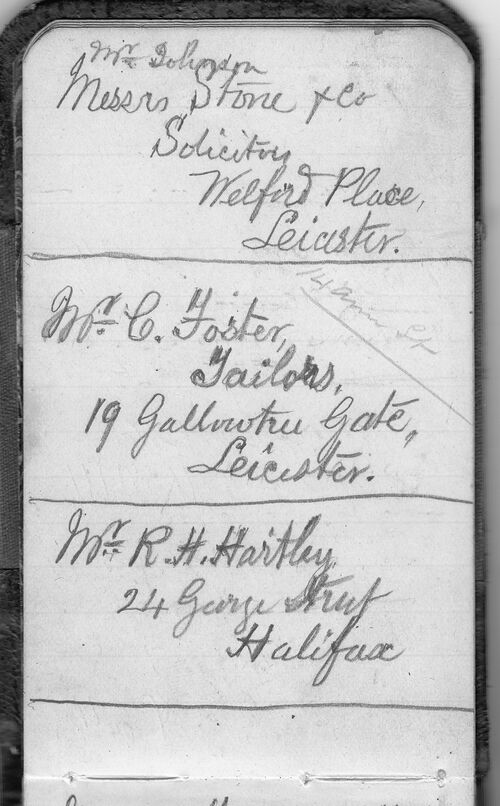 Mr Johnson
Messrs Stone & Co
Solicitors
Welford Place,
Leicster.
14 Ann St
Mr C. Foster,
Tailors,
19 Gallowtree Gate,
Leicester.
Mr R. H. Hartley
24 George Street
Halifax